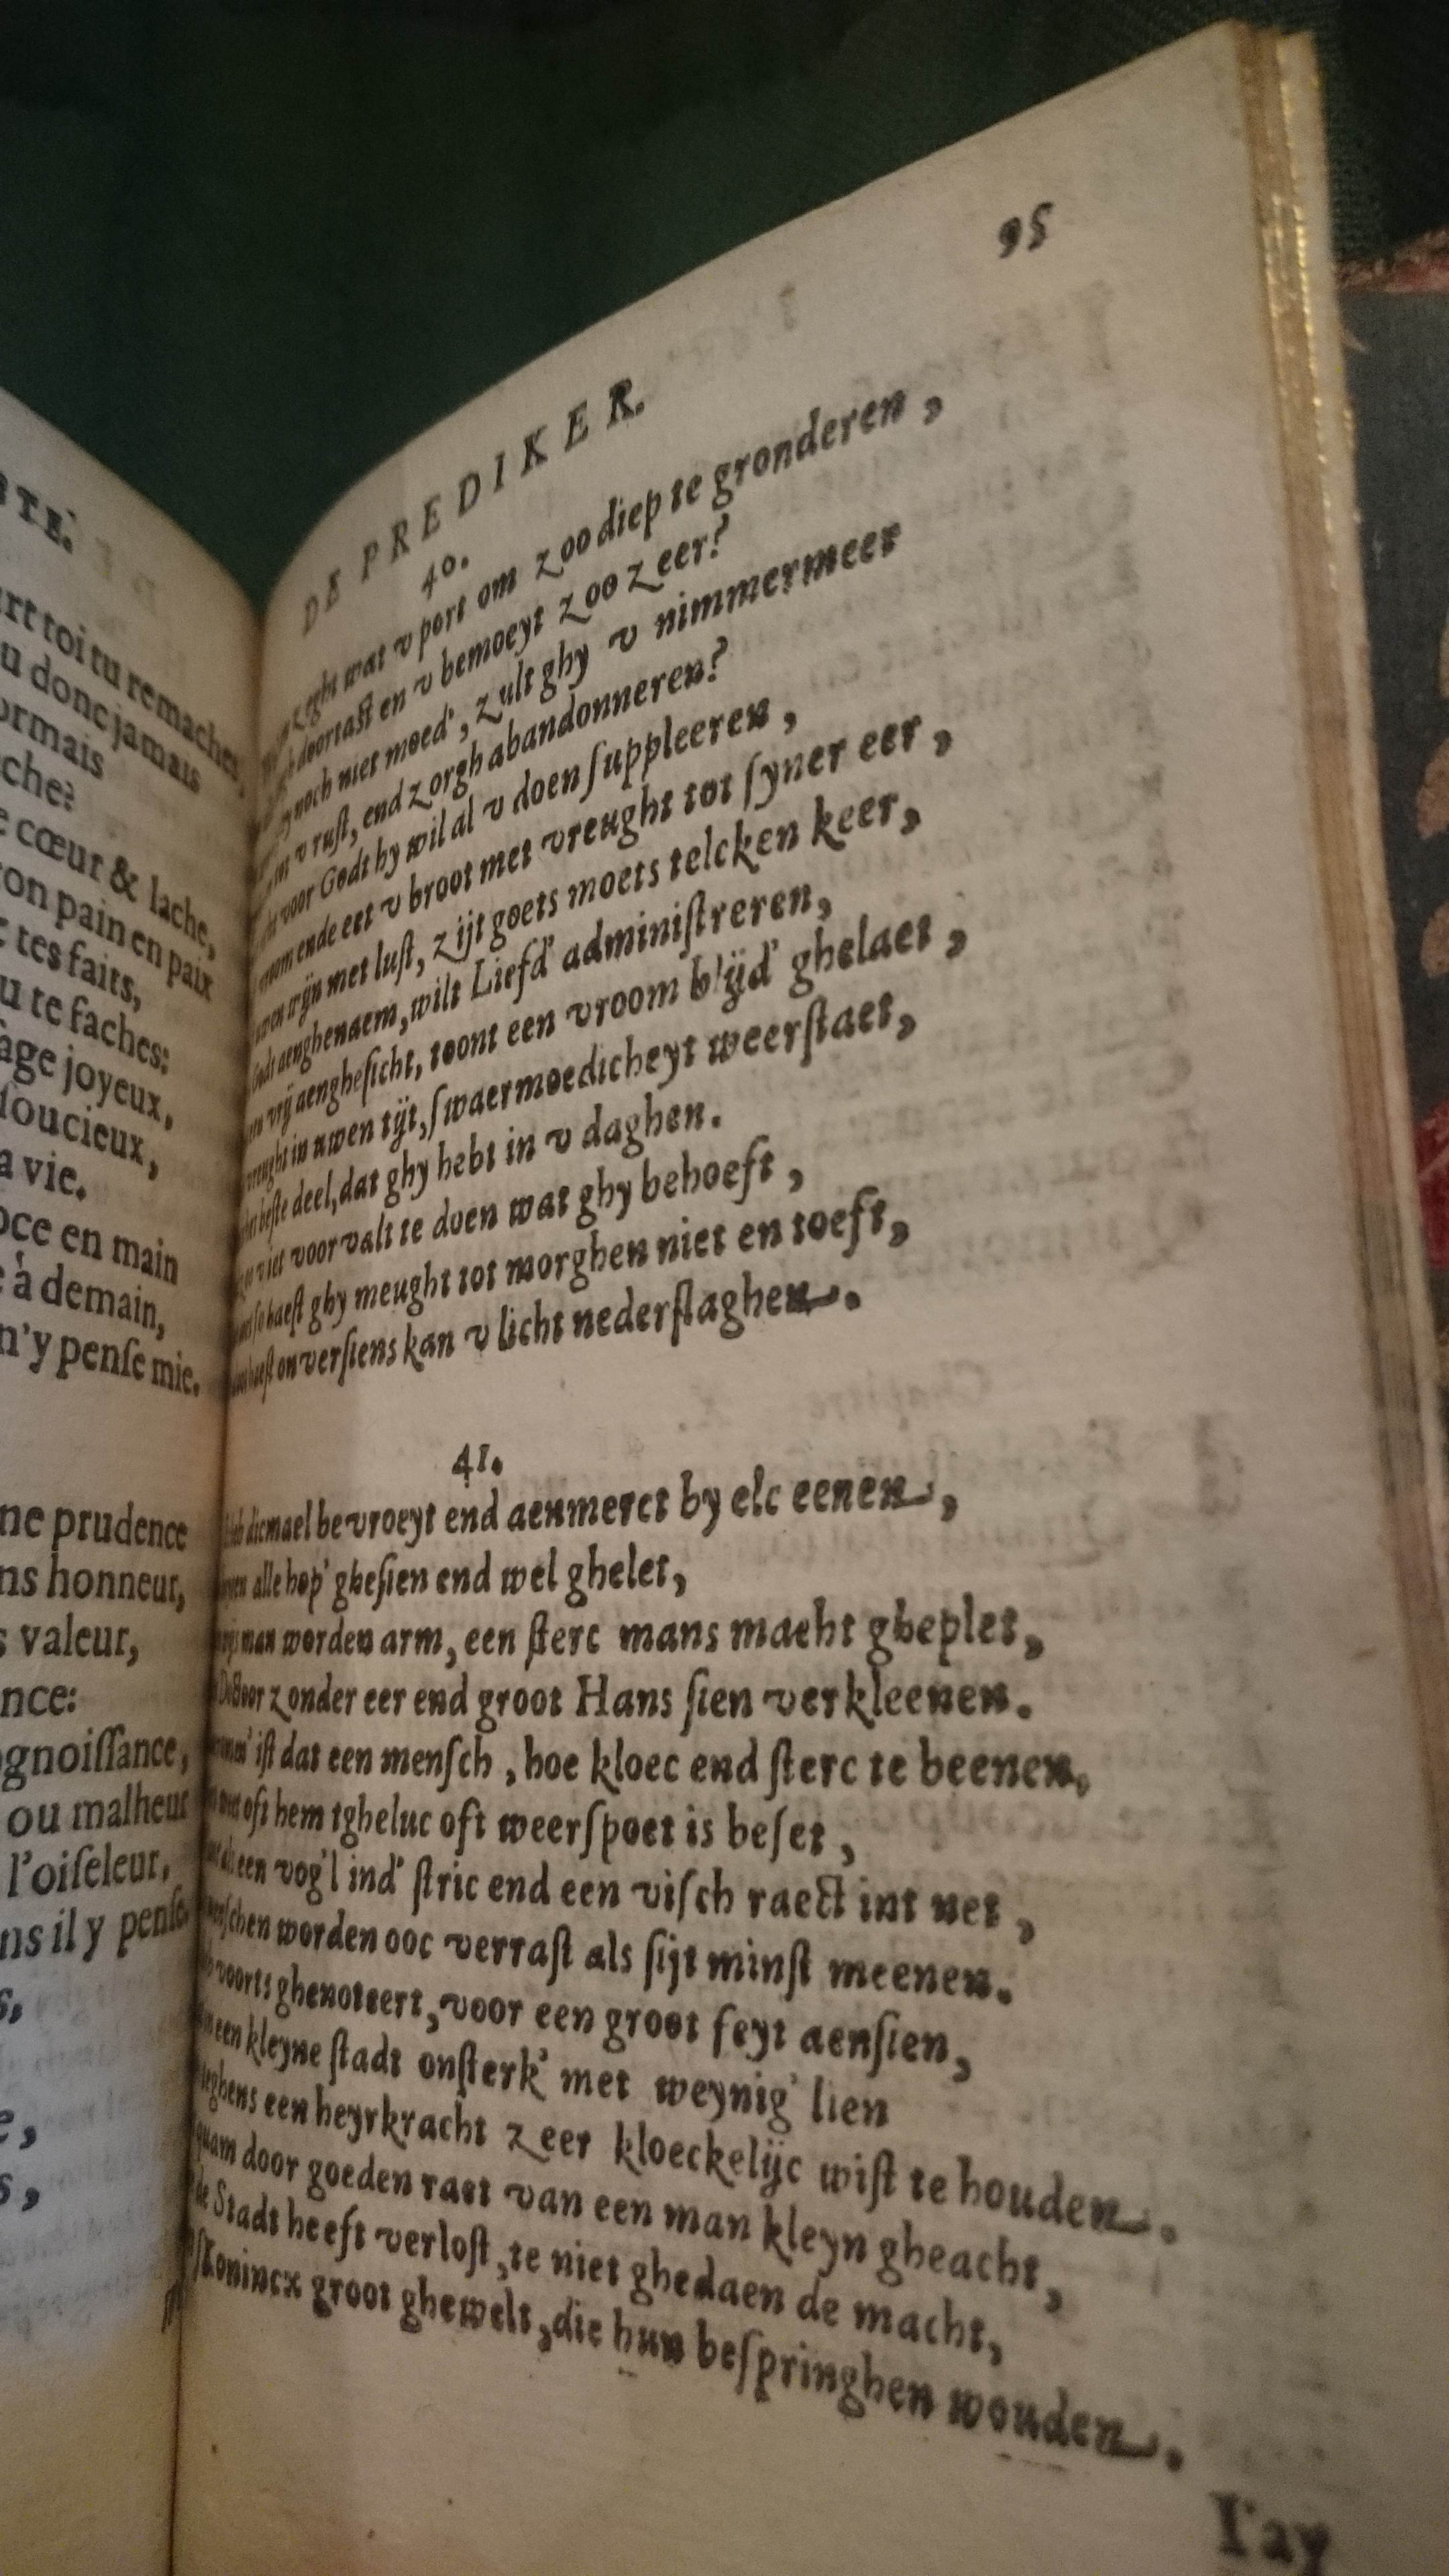 STE.
rt toi tu remaches,
u donc jamais
ormais
che?
e cœur & lache,
ton pain en paix
tes faits,
u te faches:
age joyeux,
doucieux,
a vie.
oce en main
à demain,
n'y penſe mie.
ne prudence
ns honneur,
s valeur,
nce:
ognoiſſance,
ou malheur
l'oiſeleur,
ns il y penſe
s,
e,
s,
95
DE PREDIKER.
40.
zeght wat v port om zoo diep te gronderen,
doortaſt en v bemoeyt zoo zeer?
noch niet moed', zult ghy v nimmermeer
v ruſt, end zorgh abandonneren?
voor Godt hy wil al v doen ſuppleeren,
vroom ende eet v broot met vreught tot ſyner eer,
wijn met luſt, zijt goets moets telcken keer,
Godt aenghenaem, wilt Liefd' adminiſtreren,
vrij aengheſicht, toont een vroom blijd' ghelaet,
vreught in uwen tijt, ſwaermoedicheyt weerſtaet,
beſte deel, dat ghy hebt in v daghen.
niet voorvalt te doen wat ghy behoeft,
haeſt ghy meught tot morghen niet en toeft,
onverſiens kan v licht nederſlaghen.
41.
diemael bevroeyt end aenmerct by elc eenen,
alle hop' gheſien end wel ghelet,
man worden arm, een ſterc mans macht gheplet,
Doctoor zonder eer end groot Hans ſien verkleenen.
iſt dat een menſch, hoe kloec end ſterc te beenen.
oft hem tgheluc oft weerſpoet is beſet,
een vog'l ind' ſtric end een viſch raect int net,
menſchen worden ooc verraſt als ſijt minſt meenen.
voorts ghenoteert, voor een groot feyt aenſien,
een kleyne ſtadt onſterk' met weynig' lien
teghens een heyrkracht zeer kloeckelijc wiſt te houden.
quam door goeden raet van een man kleyn gheacht,
de Stadt heeft verloſt, te niet ghedaen de macht,
Konincx groot ghewelt, die hun beſpringhen wouden.
I'ay